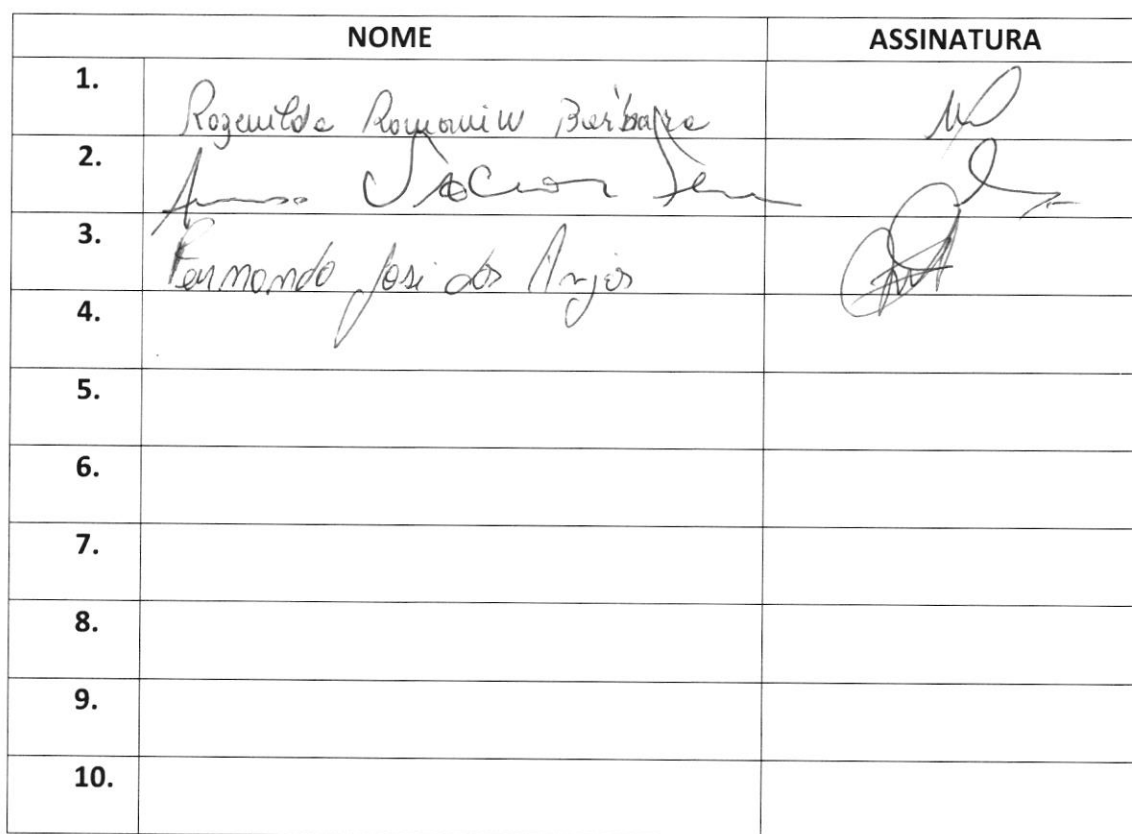 NOME ASSINATURA
1. Rozenilda Romaniw Bárbara
2.
3. Fernando José dos Anjos
4.
5.
6.
7.
8.
9.
10.